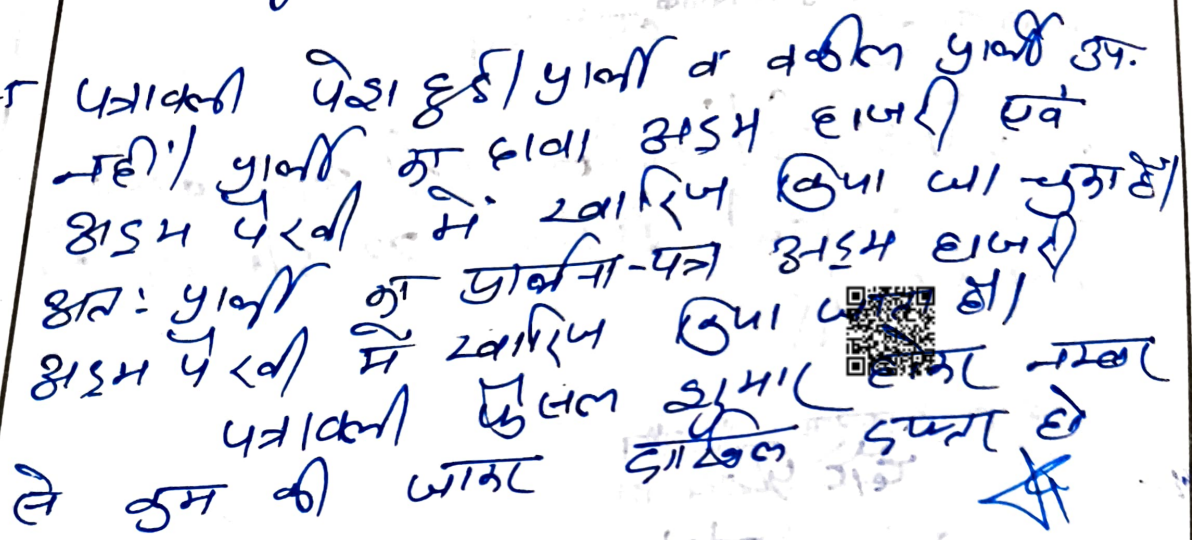 पत्रावली पेश हुई। प्रार्थी व वकील प्रार्थी उप.
नहीं। प्रार्थी का दावा अदम हाजरी एवं
अदम पैरवी में खारिज किया जा चुका है।
अतः प्रार्थी का प्रार्थना-पत्र अदम हाजरी
अदम पैरवी में खारिज किया जाता है।
पत्रावली फैसल शुमार होकर नम्बर
से कम की जाकर दाखिल दफ्तर हो